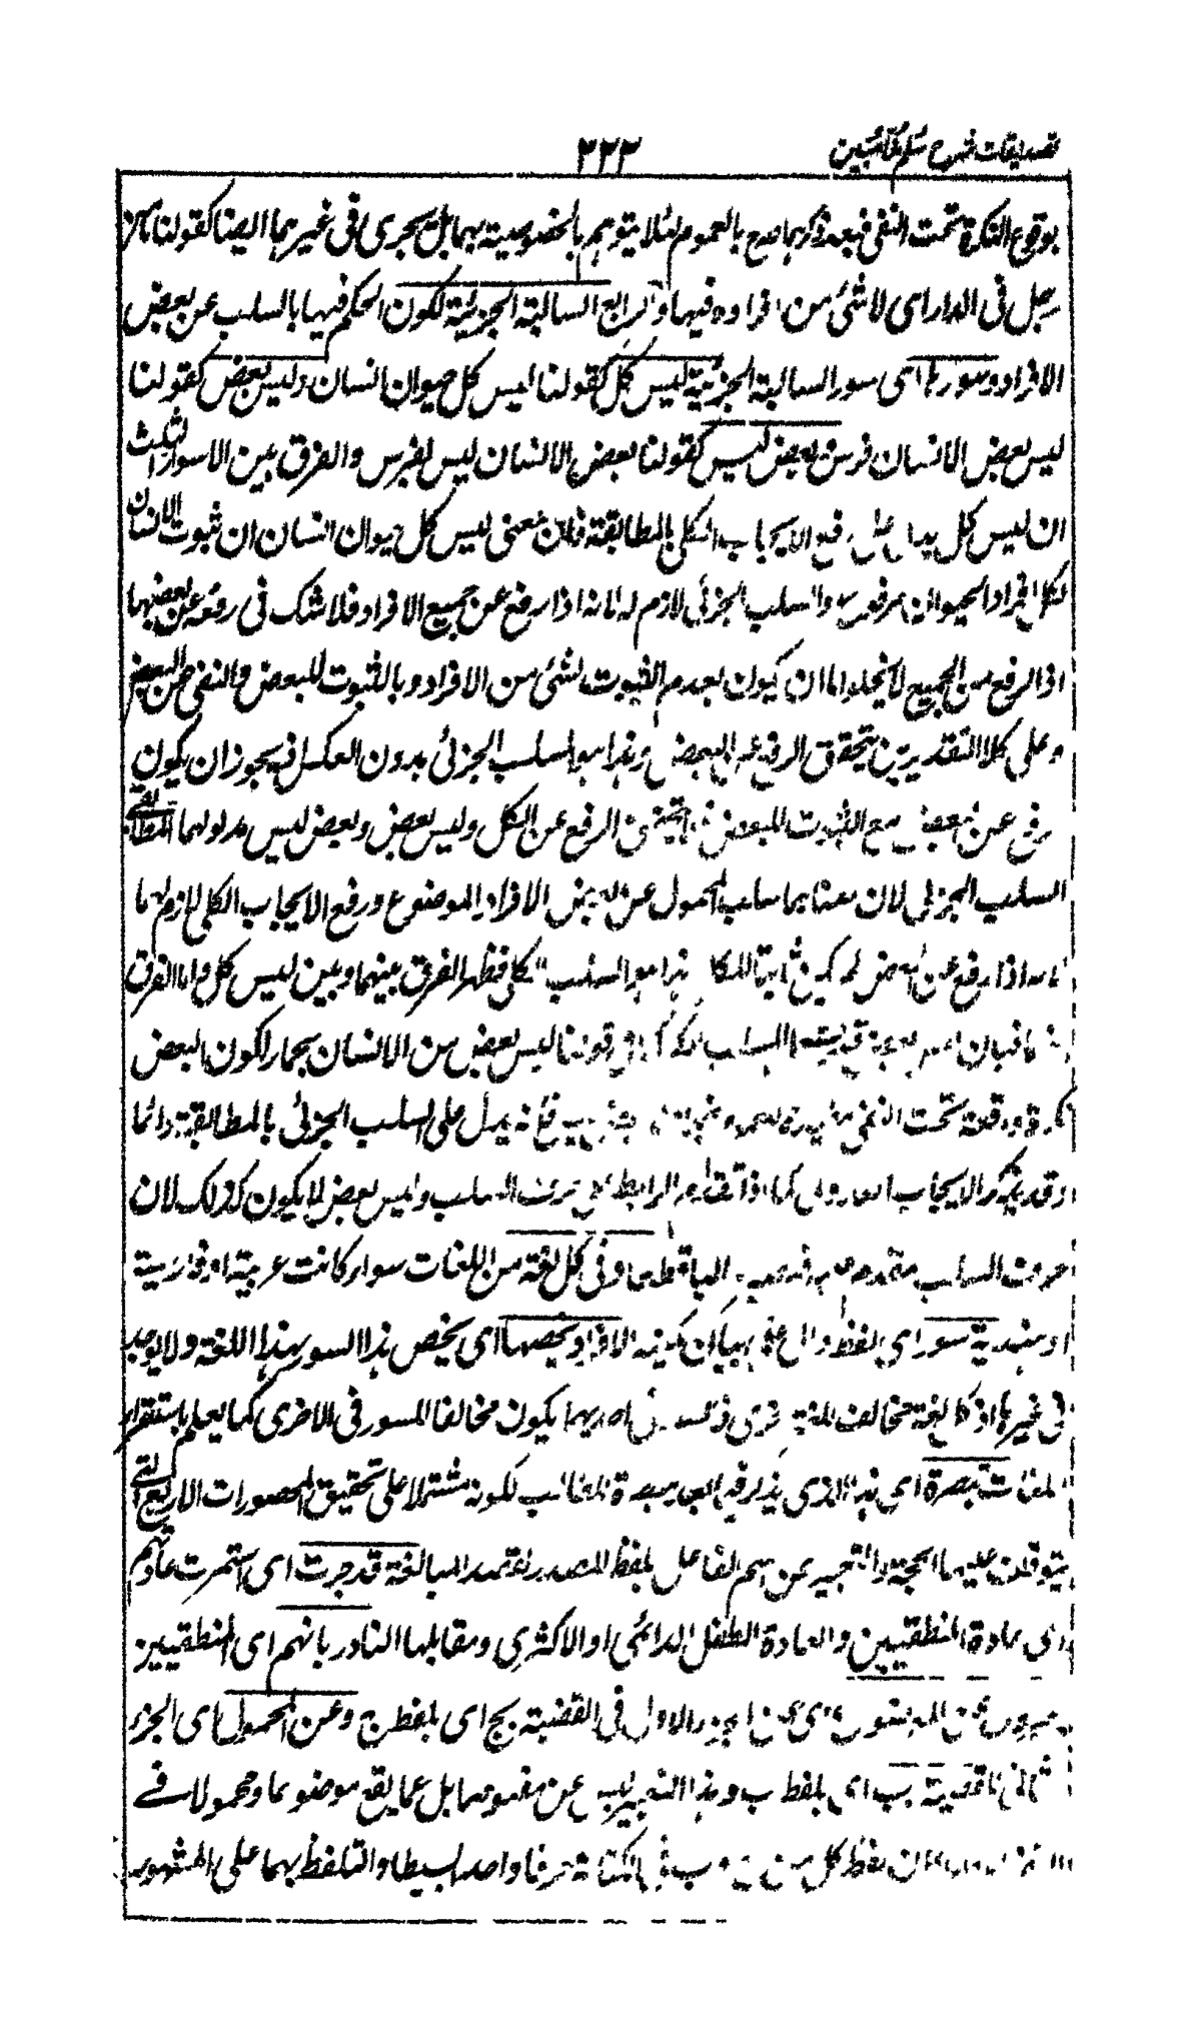 تصدیقات شرح سلم ملا مبین
۲۲۳
بوقوع النكرة تحت النفى فبعد ذكرهما صرح بالعموم لئلا يتوهم بالخصوصية بهما بل يجرى فى غيرهما ايضا كقولنا ما من
رجل فى الدار اى لا شئ من افراده فيها والرابع السالبة الجزئية لكون الحكم فيها بالسلب عن بعض
الافراد وسورها اى سور السالبة الجزئية ليس كل كقولنا ليس كل حيوان انسان وليس بعض كقولنا
ليس بعض الانسان فرس وبعض ليس كقولنا بعض الانسان ليس بفرس والفرق بين الاسوار الثلث
ان ليس كل يدل على رفع الايجاب الكلى بالمطابقة فان معنى ليس كل حيوان انسان ان ثبوت الانسان
لكل افراد الحيوان مرفوع والسلب الجزئى لازم له لانه اذا رفع عن جميع الافراد فلا شك فى رفعه عن بعضها
اذ الرفع من الجميع لا يخلو اما ان يكون بعدم الثبوت لشئ من الافراد وبالثبوت للبعض والنفى عن البعض
وعلى كلا التقديرين يتحقق الرفع عن البعض وهذا هو السلب الجزئى بدون العكس فيجوز ان يكون
رفع عن بعض مع الثبوت للبعض فيتحقق الرفع عن الكل وليس بعض وبعض ليس مدلولهما المطابقى
السلب الجزئى لان معناهما سلب المحمول عن بعض الافراد الموضوع ورفع الايجاب الكلى لازم لهما
لانه اذا رفع عن بعض لم يكن ثابتا للكل هذا هو السلب الكلى فظهر الفرق بينهما وبين ليس كل واما الفرق
قولنا ليس بعض من الانسان بحمار لكون البعض
نكرة وقعت تحت النفى فانه يدل على السلب الجزئى بالمطابقة دائما
وقد يذكر للايجاب العدولى كما اذا تقدم الرابط على حرف السلب وليس بعض لا يكون كذلك لان
حرف السلب متقدم وفى كل لغة من اللغات سواء كانت عربية او فارسية
او هندية سور اى لفظ دال على بيان كمية الافراد يخصها اى يخص هذا السور بهذا اللغة ولا يوجد
فى غيرها اذ كل لغة مخالف للغة اخرى فالسور فى احدهما يكون مخالفا للسور فى الاخرى كما يعلم باستقراء
اللغات تبصرة اى هذا الذى يذكر فيه تبصرة للطالب لكونه مشتملا على تحقيق المحصورات الاربع التى
يتوقف عليها الحجة والتعبير عن اسم الفاعل بلفظ المصدر لقصد المبالغة قد جرت اى استمرت عادتهم
اى عادة المنطقيين والعادة الفعل الدائمى او الاكثرى ومقابلها النادر بانهم اى المنطقيين
يعبرون عن الموضوع اى عن الجزء الاول فى القضية بج اى بلفظ ج وعن المحمول اى الجزء
الثانى للقضية بب اى بلفظ ب وهذا التعبير ليس عن مفهومهما بل عما يقع موضوعا ومحمولا فى
لفظ كل من ج وب فى الكتابة حرفا واحدا بسيطا والتلفظ بهما على المشهور